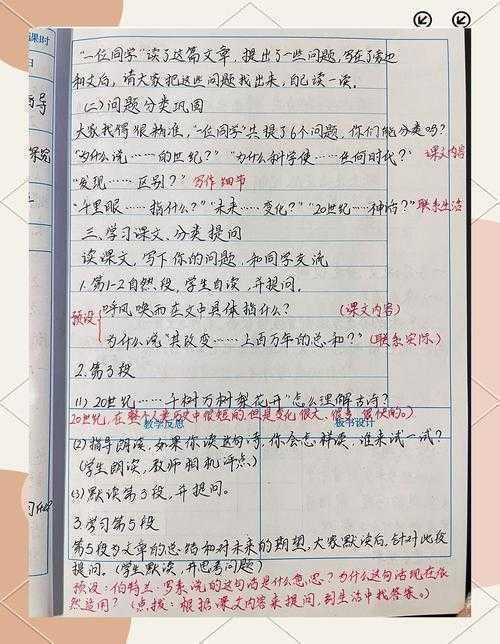 课时
日
"一位同学"读了这篇文章，提出了一些问题，写在了旁边
和文后，请大家把这些问题找出来，自己读一读。
(二)问题分类巩固
大家找得很精准，"一位同学"共提了6个问题，你们能分类吗？
"为什么说……的世纪？""为什么科学使……任何时代？" 课文内容
"发现……区别？" 写作细节
"千里眼……指什么？""未来……变化？""20世纪……神话？"联系生活
三、学习课文，分类提问
读课文，写下你的问题，和同学交流
1.第1-2自然段，学生自读，并提问。
预设 "呼风唤雨在文中具体指什么？ (课文内容)
为什么说"其改变……上百万年的总和？"(联系实际)
2.第3段
(1)"20世纪……千树万树梨花开"怎么理解古诗？
20世纪，在整个人类历史中很短的，但是变化很大、很多、很快的。)
教学反思 板书设计
(2)指导朗读，如果你读这句诗，你会怎样读，谁来试一试？
(学生朗读，教师相机评点)
(3)默读第3段，并提问。
3.学习第5段
第5段为文章的总结和对未来的期望，大家默读后，针对此段
提问。(学生默读，并思考问题)
预设：伯特兰·罗素说的这句话是什么意思？为什么这句话现在依
然适用？(点拨：根据课文内容来提问，到生活中找答案。)